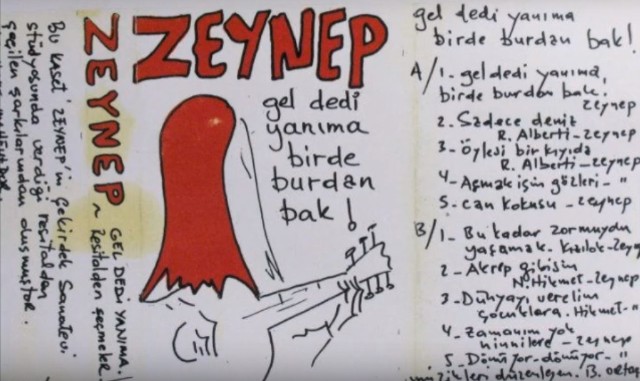 ZEYNEP
gel dedi
yanıma
birde
burdan
bak!
ZEYNEP
GEL DEDİ YANIMA!
~ Resitalden seçmeler
Bu kaset "ZEYNEP"in Çekirdek Sanatevi
stüdyosunda verdiği resitalden
seçilen şarkılarından oluşmuştur.
gel dedi yanıma
birde burdan bak!
A/ 1- gel dedi yanıma,
birde burdan bak.
zeynep
2. Sadece deniz
R. Alberti - zeynep
3- Öylesi bir kıyıda
R. Alberti - zeynep
4- Aşmak için gözleri - "
5- can kokusu - zeynep
B/ 1- Bu kadar zormuydu
yaşamak. Kızılok - Zey
2 - Akrep gibisin
N. Hikmet - Zeynep
3 - Dünyayı verelim
çocuklara. Hikmet - "
4- Zamanım yok
ninnilere - zeynep
5. Dönüyor - dönüyor - "
düzenleyen. B.